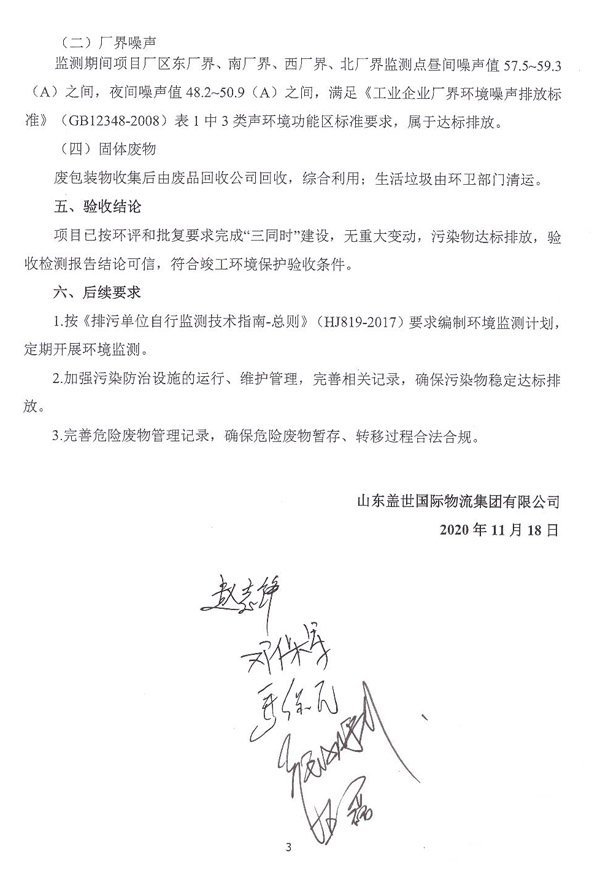 （二）厂界噪声
监测期间项目厂区东厂界、南厂界、西厂界、北厂界监测点昼间噪声值 57.5~59.3
（A）之间，夜间噪声值 48.2~50.9（A）之间，满足《工业企业厂界环境噪声排放标
准》（GB12348-2008）表 1 中 3 类声环境功能区标准要求，属于达标排放。
（四）固体废物
废包装物收集后由废品回收公司回收，综合利用；生活垃圾由环卫部门清运。
五、验收结论
项目已按环评和批复要求完成“三同时”建设，无重大变动，污染物达标排放，验
收检测报告结论可信，符合竣工环境保护验收条件。
六、后续要求
1.按《排污单位自行监测技术指南-总则》（HJ819-2017）要求编制环境监测计划，
定期开展环境监测。
2.加强污染防治设施的运行、维护管理，完善相关记录，确保污染物稳定达标排
放。
3.完善危险废物管理记录，确保危险废物暂存、转移过程合法合规。
山东盖世国际物流集团有限公司
2020 年 11 月 18 日
3